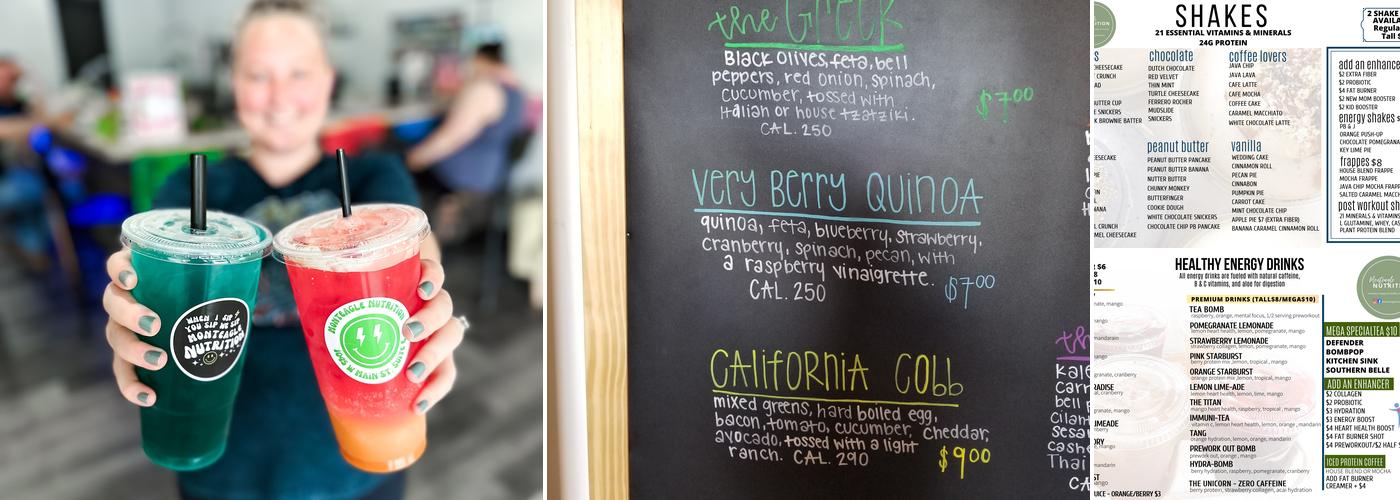 WHEN I SIP
YOU SIP WE SIP
MONTEAGLE
NUTRITION
MONTEAGLE NUTRITION
the GREEK
Black olives, feta, bell
peppers, red onion, spinach,
cucumber, tossed with
Italian or house tzatziki.
CAL. 250
$7.00
Very Berry Quinoa
quinoa, feta, blueberry, strawberry,
cranberry, spinach, pecan, with
a raspberry vinaigrette.
CAL. 250
$7.00
California Cobb
mixed greens, hard boiled egg,
bacon, tomato, cucumber, cheddar,
avocado, tossed with a light
ranch. CAL. 290
$9.00
th
Kale
Carr
bell p
Cilan
Sesa
cashe
Thai
CA
SHAKES
21 ESSENTIAL VITAMINS & MINERALS
24G PROTEIN
2 SHAKE
AVAILA
Regula
Tall $
HEESECAKE
CRUNCH
AD
BUTTER CUP
E SNICKERS
K BROWNIE BATTER
chocolate
DUTCH CHOCOLATE
RED VELVET
THIN MINT
TURTLE CHEESECAKE
FERRERO ROCHER
MUDSLIDE
SNICKERS
coffee lovers
JAVA CHIP
JAVA LAVA
CAFE LATTE
CAFE MOCHA
COFFEE CAKE
CARAMEL MACCHIATO
WHITE CHOCOLATE LATTE
EESECAKE
PIE
NANA
L CRUNCH
MEL CHEESECAKE
peanut butter
PEANUT BUTTER PANCAKE
PEANUT BUTTER BANANA
NUTTER BUTTER
CHUNKY MONKEY
BUTTERFINGER
COOKIE DOUGH
WHITE CHOCOLATE SNICKERS
CHOCOLATE CHIP PB PANCAKE
vanilla
WEDDING CAKE
CINNAMON ROLL
PECAN PIE
CINNABON
PUMPKIN PIE
CARROT CAKE
MINT CHOCOLATE CHIP
APPLE PIE $7 (EXTRA FIBER)
BANANA CARAMEL CINNAMON ROLL
add an enhance
$2 EXTRA FIBER
$2 PROBIOTIC
$4 FAT BURNER
$2 NEW MOM BOOSTER
$2 KID BOOSTER
energy shakes $
PB & J
ORANGE PUSH-UP
CHOCOLATE POMEGRANA
KEY LIME PIE
frappes $8
HOUSE BLEND FRAPPE
MOCHA FRAPPE
JAVA CHIP MOCHA FRAPP
SALTED CARAMEL MACC
post workout sh
21 MINERALS & VITAMINS
L GLUTAMINE, WHEY, CAS
PLANT PROTEIN BLEND
HEALTHY ENERGY DRINKS
All energy drinks are fueled with natural caffeine,
B & C vitamins, and aloe for digestion
NUTRITI
$6
8
10
PREMIUM DRINKS (TALL$8/MEGA$10)
TEA BOMB
raspberry, orange, mental focus, 1/2 serving preworkout
POMEGRANATE LEMONADE
lemon heart health, lemon, pomegranate, mango
STRAWBERRY LEMONADE
strawberry collagen, lemon, pomegranate, mango
PINK STARBURST
berry protein mix, lemon, tropical, mango
ORANGE STARBURST
orange protein mix, lemon, tropical, mango
LEMON LIME-ADE
lemon heart health, lemon, lime, mango
THE TITAN
mango heart health, raspberry, tropical, mango
IMMUNI-TEA
vitamin c, lemon heart health, lemon, orange, mandarin
TANG
orange hydration, lemon, orange, mandarin
PREWORK OUT BOMB
prework out, orange, mango
HYDRA-BOMB
berry hydration, raspberry, pomegranate, cranberry
THE UNICORN - ZERO CAFFEINE
berry protein, strawberry collagen, acai hydration
UICE - ORANGE/BERRY $3
MEGA SPECIALTEA $10
DEFENDER
BOMBPOP
KITCHEN SINK
SOUTHERN BELLE
ADD AN ENHANCER
$2 COLLAGEN
$2 PROBIOTIC
$3 HYDRATION
$3 ENERGY BOOST
$4 HEART HEALTH BOOST
$4 FAT BURNER SHOT
$4 PREWORKOUT/$2 HALF S
ICED PROTEIN COFFEE
HOUSE BLEND OR MOCHA
ADD FAT BURNER
CREAMER + $4